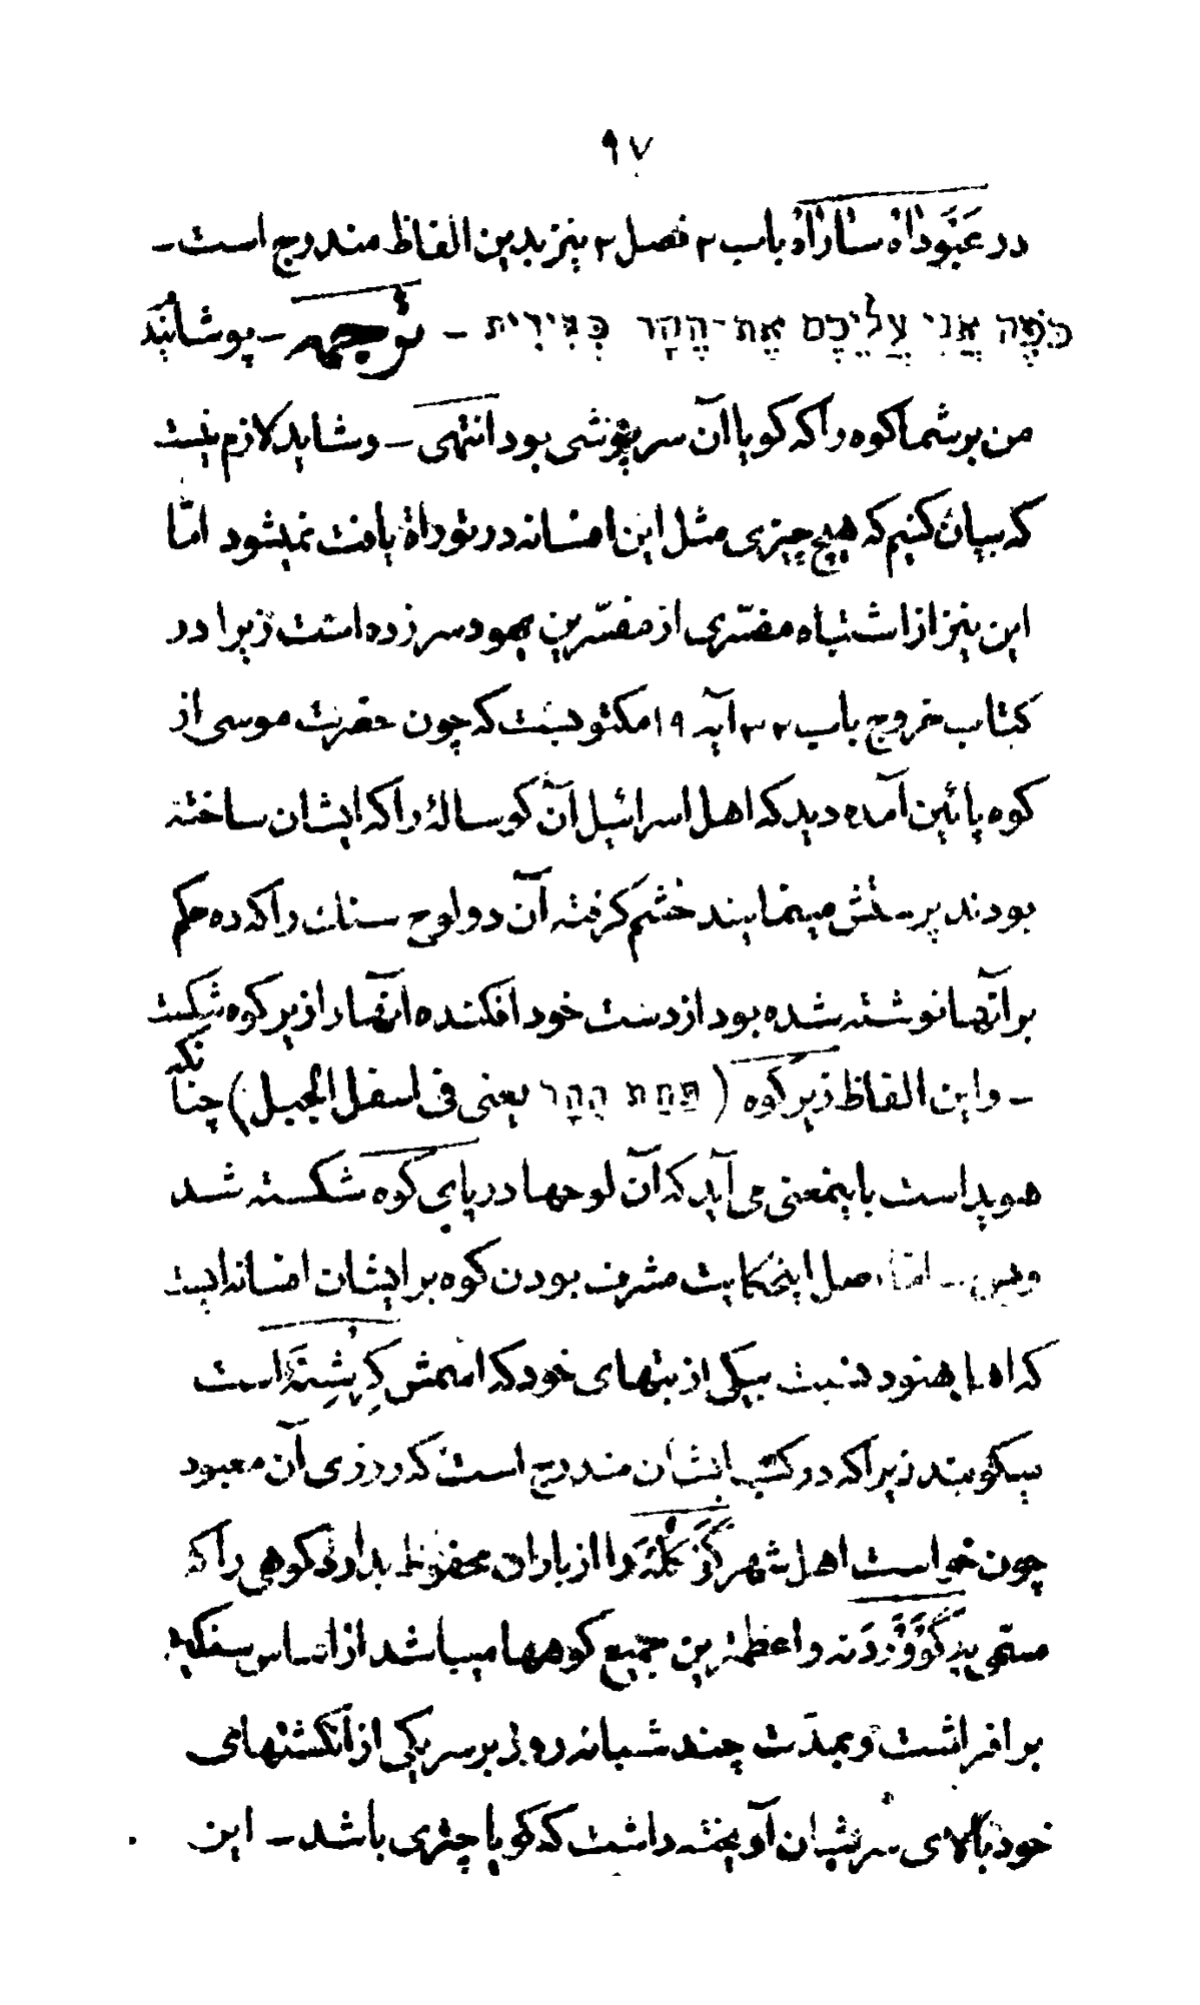 ۹۷
در عَبَوداه ساراه باب ۲ فصل ۲ نیز بدین الفاظ مندرج است ـ
כֹּפֶה אֲנִי עֲלֵיכֶם אֶת־הָהָר כְּגִיגִית ـ ترجمه ـ پوشانیَد
من بر شما کوه را که کویا آن سرپوشی بود انتهی ـ و شاید لازم نیست
که بیان کنیم که هیچ چیزی مثل این افسانه در توراة یافت نمیشود امّا
این نیز از اشتباه مفسّری از مفسّرین یهود سر زده است زیرا در
کتاب خروج باب ۳۲ آیه ۱۹ مکتوبست که چون حضرت موسی از
کوه پائین آمده دید که اهل اسرائیل آن کوسالهٔ را که ایشان ساخته
بودند پرستش مینمایند خشم کرفته آن دو لوح سنک را که ده حکم
بر آنها نوشته شده بود از دست خود افکنده آنها را زیر کوه شکست
ـ و این الفاظ زیر کوه (תַּחַת הָהָר یعنی فی اسفل الجبل) چنانکه
هویداست باینمعنی می آید که آن لوحها در پای کوه شکسته شد
وبس ـ امّا اصل اینحکایت مشرف بودن کوه بر ایشان افسانه ایست
که اهل هنود نسبت بیکی از بتهای خود که اسمش کِرِیشِنَه است
میکویند زیرا که در کتب ایشان مندرج است که روزی آن معبود
چون خواست اهل شهر کُوکُلَه را از باران محفوظ بدارد کوهی را که
مسمّی به کُووَردَنه و اعظمترین جمیع کوهها میباشد از اساس سنکی
بر افراشت و بمدّت چند شبانه روز بر سر یکی از انکشتهای
خود بالای سر ایشان آویخته داشت که کویا چتری باشد ـ این